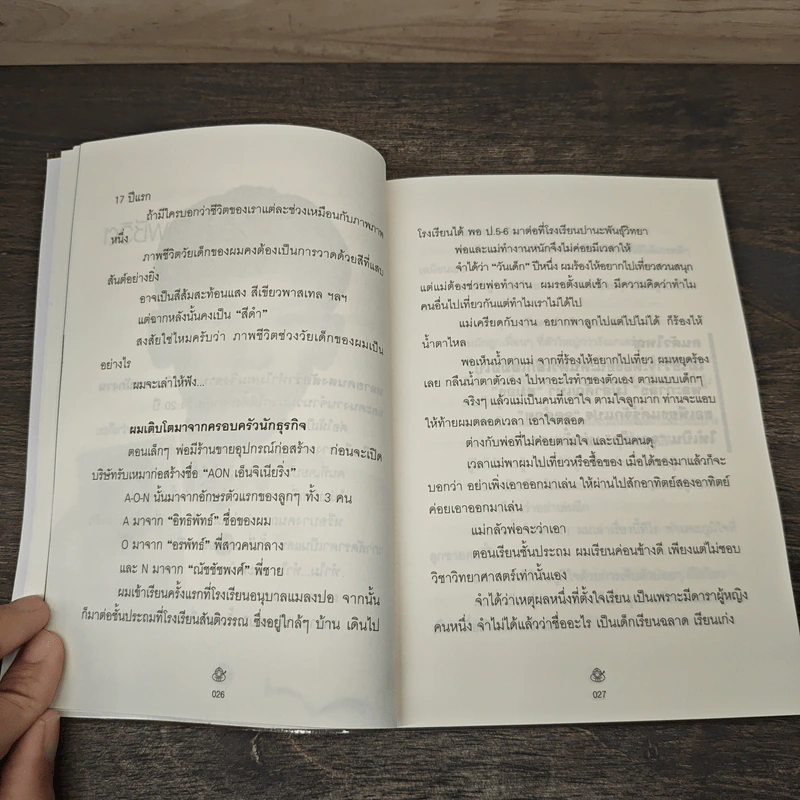 17 ปีแรก
ถ้ามีใครบอกว่าชีวิตของเราแต่ละช่วงเหมือนกับภาพภาพ
หนึ่ง
ภาพชีวิตวัยเด็กของผมคงต้องเป็นการวาดด้วยสีที่แสบ
สันต์อย่างยิ่ง
อาจเป็นสีส้มสะท้อนแสง สีเขียวพาสเทล ฯลฯ
แต่ฉากหลังนั้นคงเป็น “สีดำ”
สงสัยใช่ไหมครับว่า ภาพชีวิตช่วงวัยเด็กของผมเป็น
อย่างไร
ผมจะเล่าให้ฟัง...
ผมเติบโตมาจากครอบครัวนักธุรกิจ
ตอนเล็กๆ พ่อมีร้านขายอุปกรณ์ก่อสร้าง ก่อนจะเปิด
บริษัทรับเหมาก่อสร้างชื่อ “AON เอ็นจิเนียริ่ง”
A-O-N นั้นมาจากอักษรตัวแรกของลูกๆ ทั้ง 3 คน
A มาจาก “อิทธิพัทธ์” ชื่อของผม
O มาจาก “อรพัทธ์” พี่สาวคนกลาง
และ N มาจาก “ณัชชัชพงศ์” พี่ชาย
ผมเข้าเรียนครั้งแรกที่โรงเรียนอนุบาลแมลงปอ จากนั้น
ก็มาต่อชั้นประถมที่โรงเรียนสันติวรรณ ซึ่งอยู่ใกล้ๆ บ้าน เดินไป
026
โรงเรียนได้ พอ ป.5-6 มาต่อที่โรงเรียนปานะพันธุ์วิทยา
พ่อและแม่ทำงานหนักจึงไม่ค่อยมีเวลาให้
จำได้ว่า “วันเด็ก” ปีหนึ่ง ผมร้องให้อยากไปเที่ยวสวนสนุก
แต่แม่ต้องช่วยพ่อทำงาน ผมรอตั้งแต่เช้า มีความคิดว่าทำไม
คนอื่นไปเที่ยวกันแต่ทำไมเราไม่ได้ไป
แม่เครียดกับงาน อยากพาลูกไปแต่ไปไม่ได้ ก็ร้องไห้
น้ำตาไหล
พอเห็นน้ำตาแม่ จากที่ร้องไห้อยากไปเที่ยว ผมหยุดร้อง
เลย กลืนน้ำตาตัวเอง ไปหาอะไรทำของตัวเอง ตามแบบเด็กๆ
จริงๆ แล้วแม่เป็นคนที่เอาใจ ตามใจลูกมาก ท่านจะแอบ
ให้ท้ายผมตลอดเวลา เอาใจตลอด
ต่างกับพ่อที่ไม่ค่อยตามใจ และเป็นคนดุ
เวลาแม่พาผมไปเที่ยวหรือซื้อของ เมื่อได้ของมาแล้วก็จะ
บอกว่า อย่าเพิ่งเอาออกมาเล่น ให้ผ่านไปสักอาทิตย์สองอาทิตย์
ค่อยเอาออกมาเล่น
แม่กลัวพ่อจะว่าเอา
ตอนเรียนชั้นประถม ผมเรียนค่อนข้างดี เพียงแต่ไม่ชอบ
วิชาวิทยาศาสตร์เท่านั้นเอง
จำได้ว่าเหตุผลหนึ่งที่ตั้งใจเรียน เป็นเพราะมีดาราผู้หญิง
คนหนึ่ง จำไม่ได้แล้วว่าชื่ออะไร เป็นเด็กเรียนฉลาด เรียนเก่ง
027